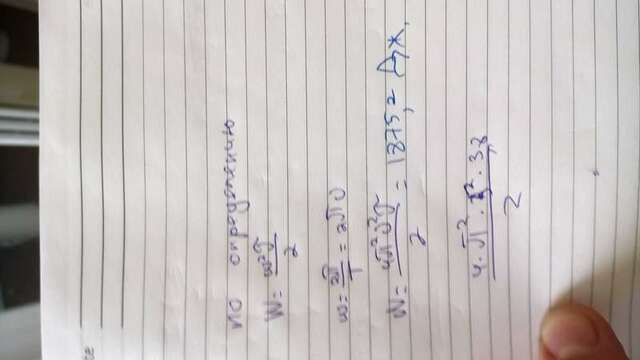 по определению
W = ω²J / 2
ω = 2π / T = 2πν
W = 4π²ν²J / 2 = 1875,2 Дж.
4 · π² · 5² · 3,8 / 2